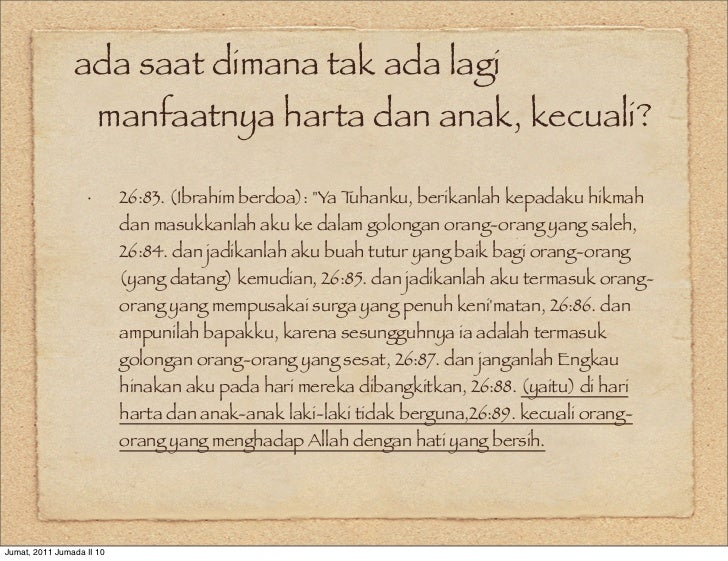 ada saat dimana tak ada lagi
manfaatnya harta dan anak, kecuali?
• 26:83. (Ibrahim berdoa): "Ya Tuhanku, berikanlah kepadaku hikmah
dan masukkanlah aku ke dalam golongan orang-orang yang saleh,
26:84. dan jadikanlah aku buah tutur yang baik bagi orang-orang
(yang datang) kemudian, 26:85. dan jadikanlah aku termasuk orang-
orang yang mempusakai surga yang penuh keni'matan, 26:86. dan
ampunilah bapakku, karena sesungguhnya ia adalah termasuk
golongan orang-orang yang sesat, 26:87. dan janganlah Engkau
hinakan aku pada hari mereka dibangkitkan, 26:88. (yaitu) di hari
harta dan anak-anak laki-laki tidak berguna,26:89. kecuali orang-
orang yang menghadap Allah dengan hati yang bersih.
Jumat, 2011 Jumada II 10